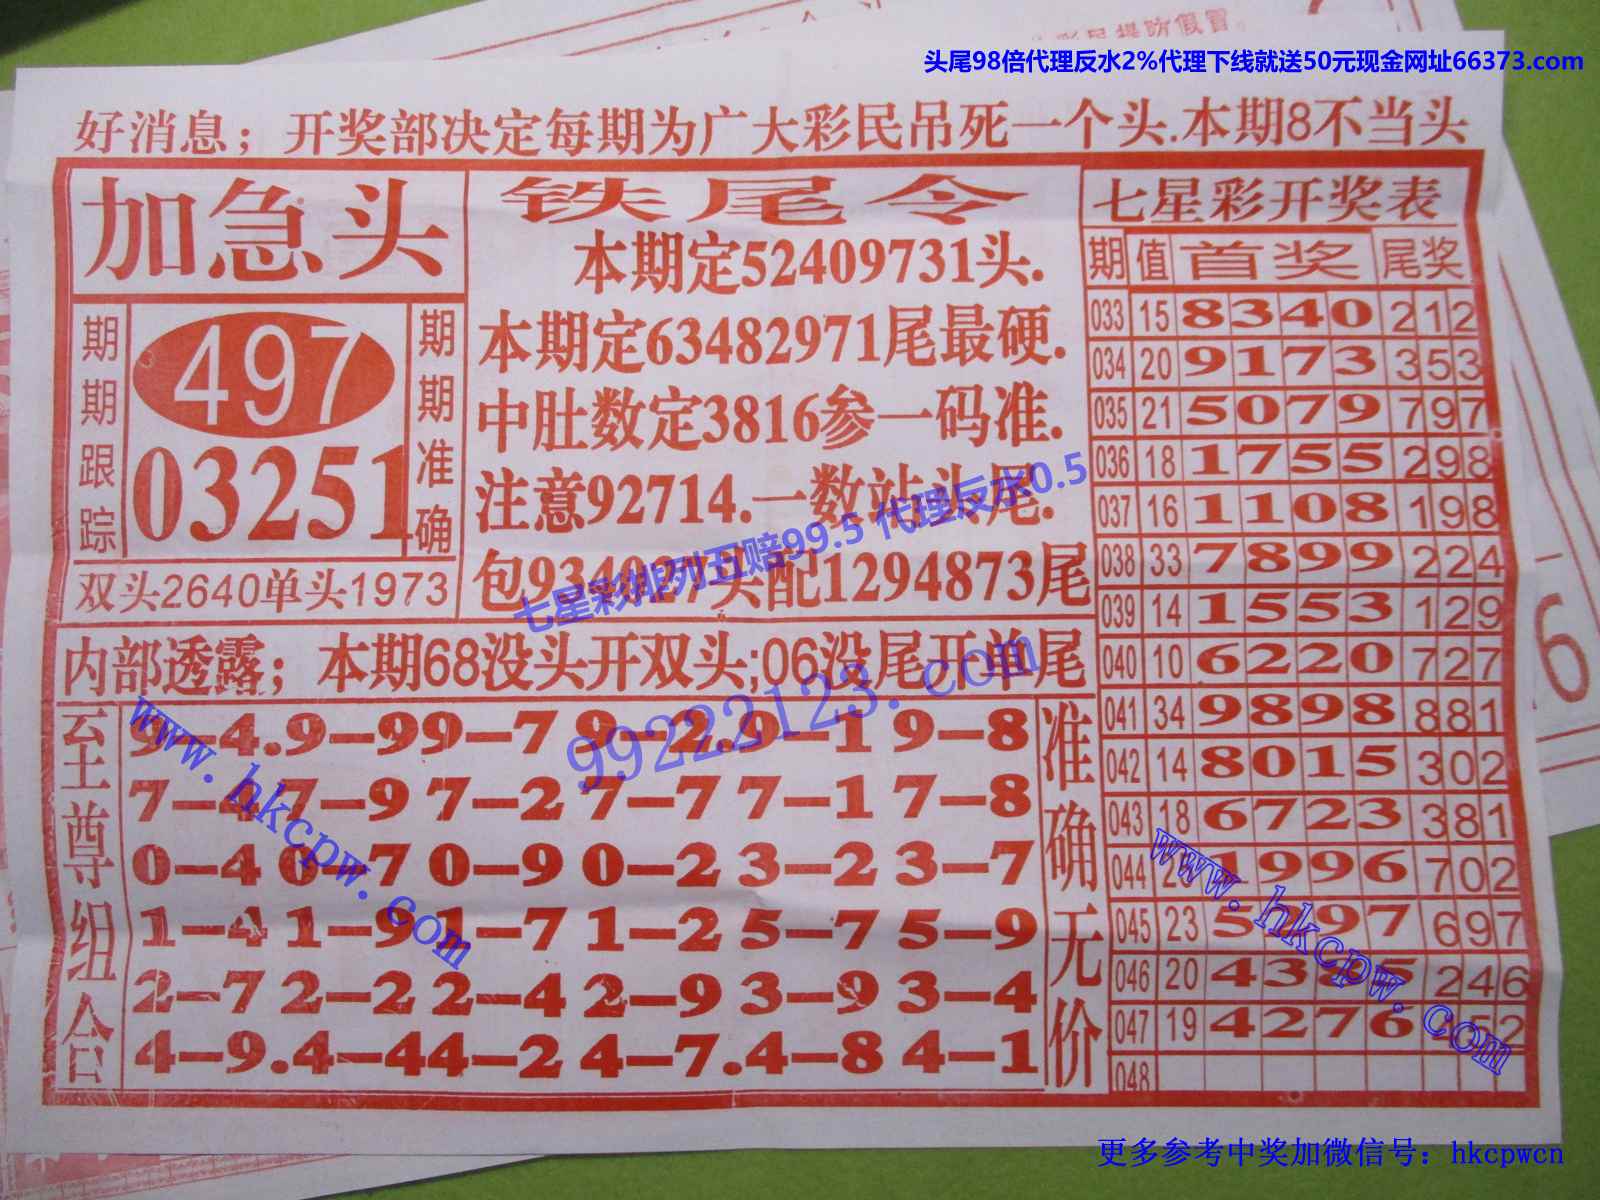 头尾98倍代理反水2%代理下线就送50元现金网址66373.com
好消息；开奖部决定每期为广大彩民吊死一个头.本期8不当头
加急头
期期跟踪
497
03251
期期准确
双头2640单头1973
铁尾令
本期定52409731头.
本期定63482971尾最硬.
中肚数定3816参一码准.
注意92714.一数站头尾.
包934027头配1294873尾
七星彩排列五赔99.5 代理反水0.5
内部透露；本期68没头开双头;06没尾开单尾
99222123.com
www.hkcpw.com
至尊组合
9–4.9–99–7 9–2.9–1 9–8
7–4 7–9 7–2 7–7 7–1 7–8
0–4 0–7 0–9 0–2 3–2 3–7
1–4 1–9 1–7 1–2 5–7 5–9
2–7 2–2 2–4 2–9 3–9 3–4
4–9.4–44–2 4–7.4–8 4–1
准确无价
七星彩开奖表
期 值 首奖 尾奖
033 15 8340 212
034 20 9173 353
035 21 5079 797
036 18 1755 298
037 16 1108 198
038 33 7899 224
039 14 1553 129
040 10 6220 727
041 34 9898 881
042 14 8015 302
043 18 6723 381
044 1996 702
045 23 697
046 20 246
047 19 4276 52
048
www.hkcpw.com
更多参考中奖加微信号：hkcpwcn